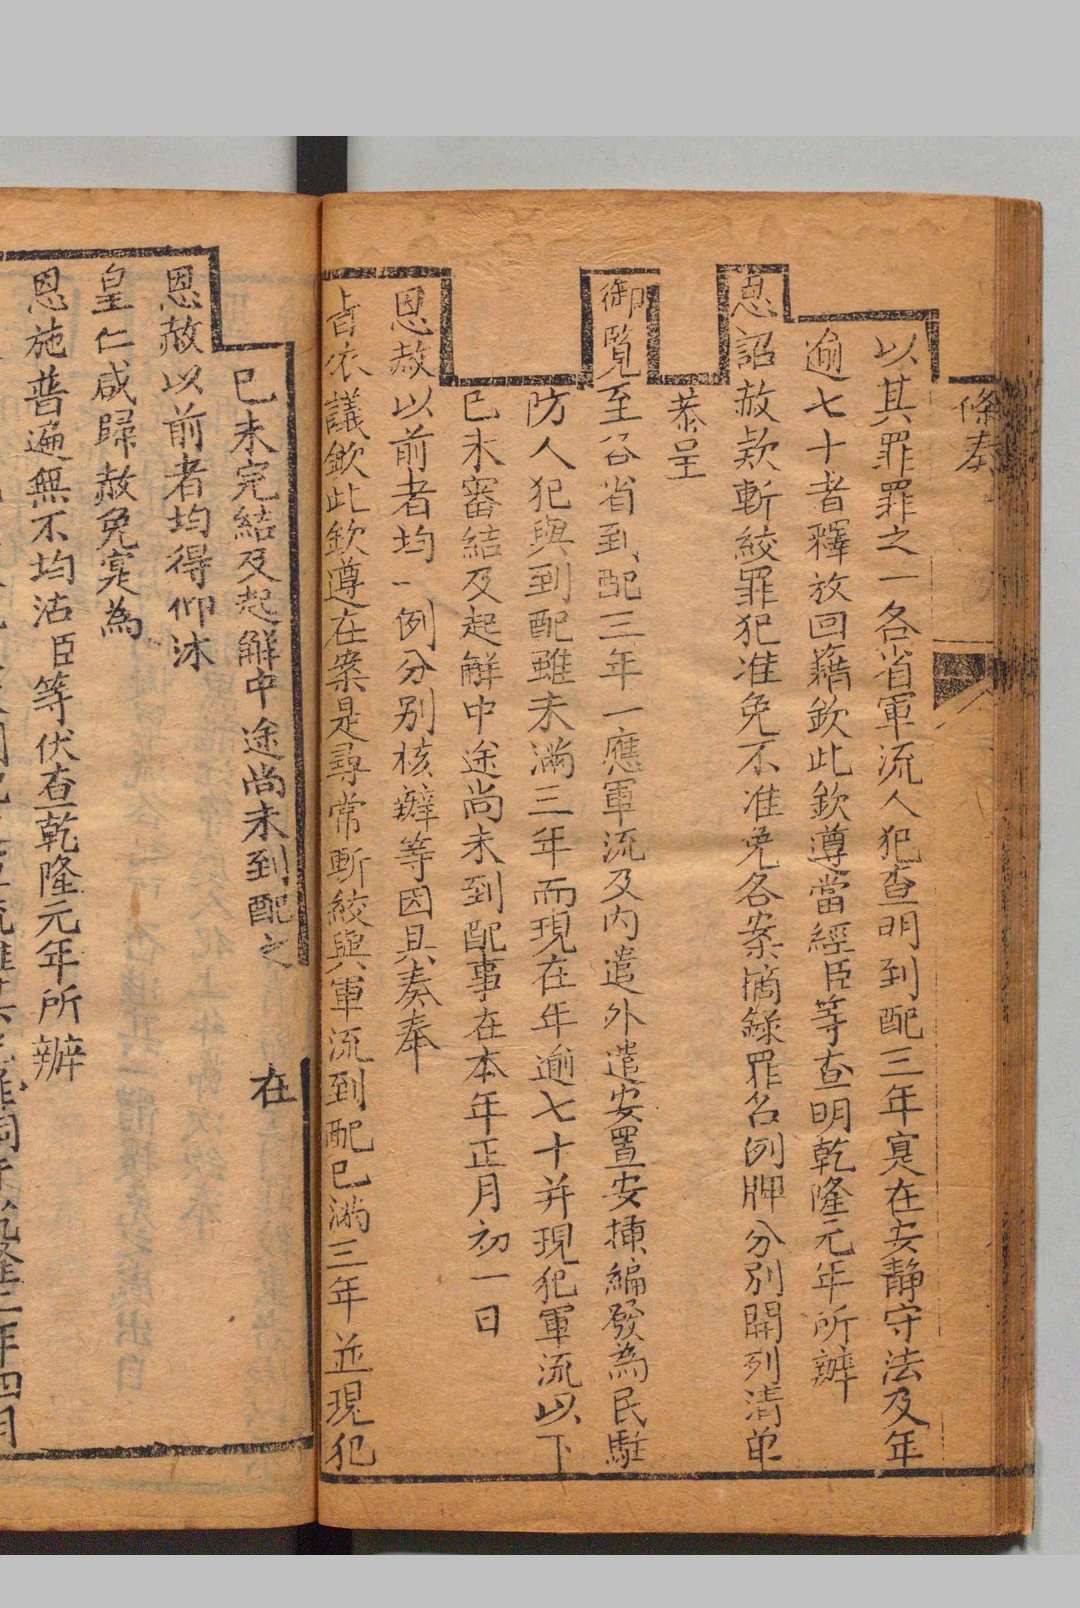 條奏
以其罪罪之一各省軍流人犯查明到配三年寔在安靜守法及年
逾七十者釋放回籍欽此欽遵當經臣等查明乾隆元年所辦
恩詔赦款斬絞罪犯准免不准免各案摘錄罪名例牌分別開列清单
恭呈
御覧至各省到配三年一應軍流及內遣外遣安置安揷編發為民駐
防人犯與到配雖未滿三年而現在年逾七十并現犯軍流以下
已未審結及起解中途尚未到配事在本年正月初一日
恩赦以前者均一例分别核辦等因具奏奉
旨依議欽此欽遵在案是尋常斬絞與軍流到配已滿三年並現犯
已未完結及起解中途尚未到配之 在
恩赦以前者均得仰沐
皇仁咸歸赦免寔為
恩施普遍無不均沾臣等伏查乾隆元年所辦
隆二年四月